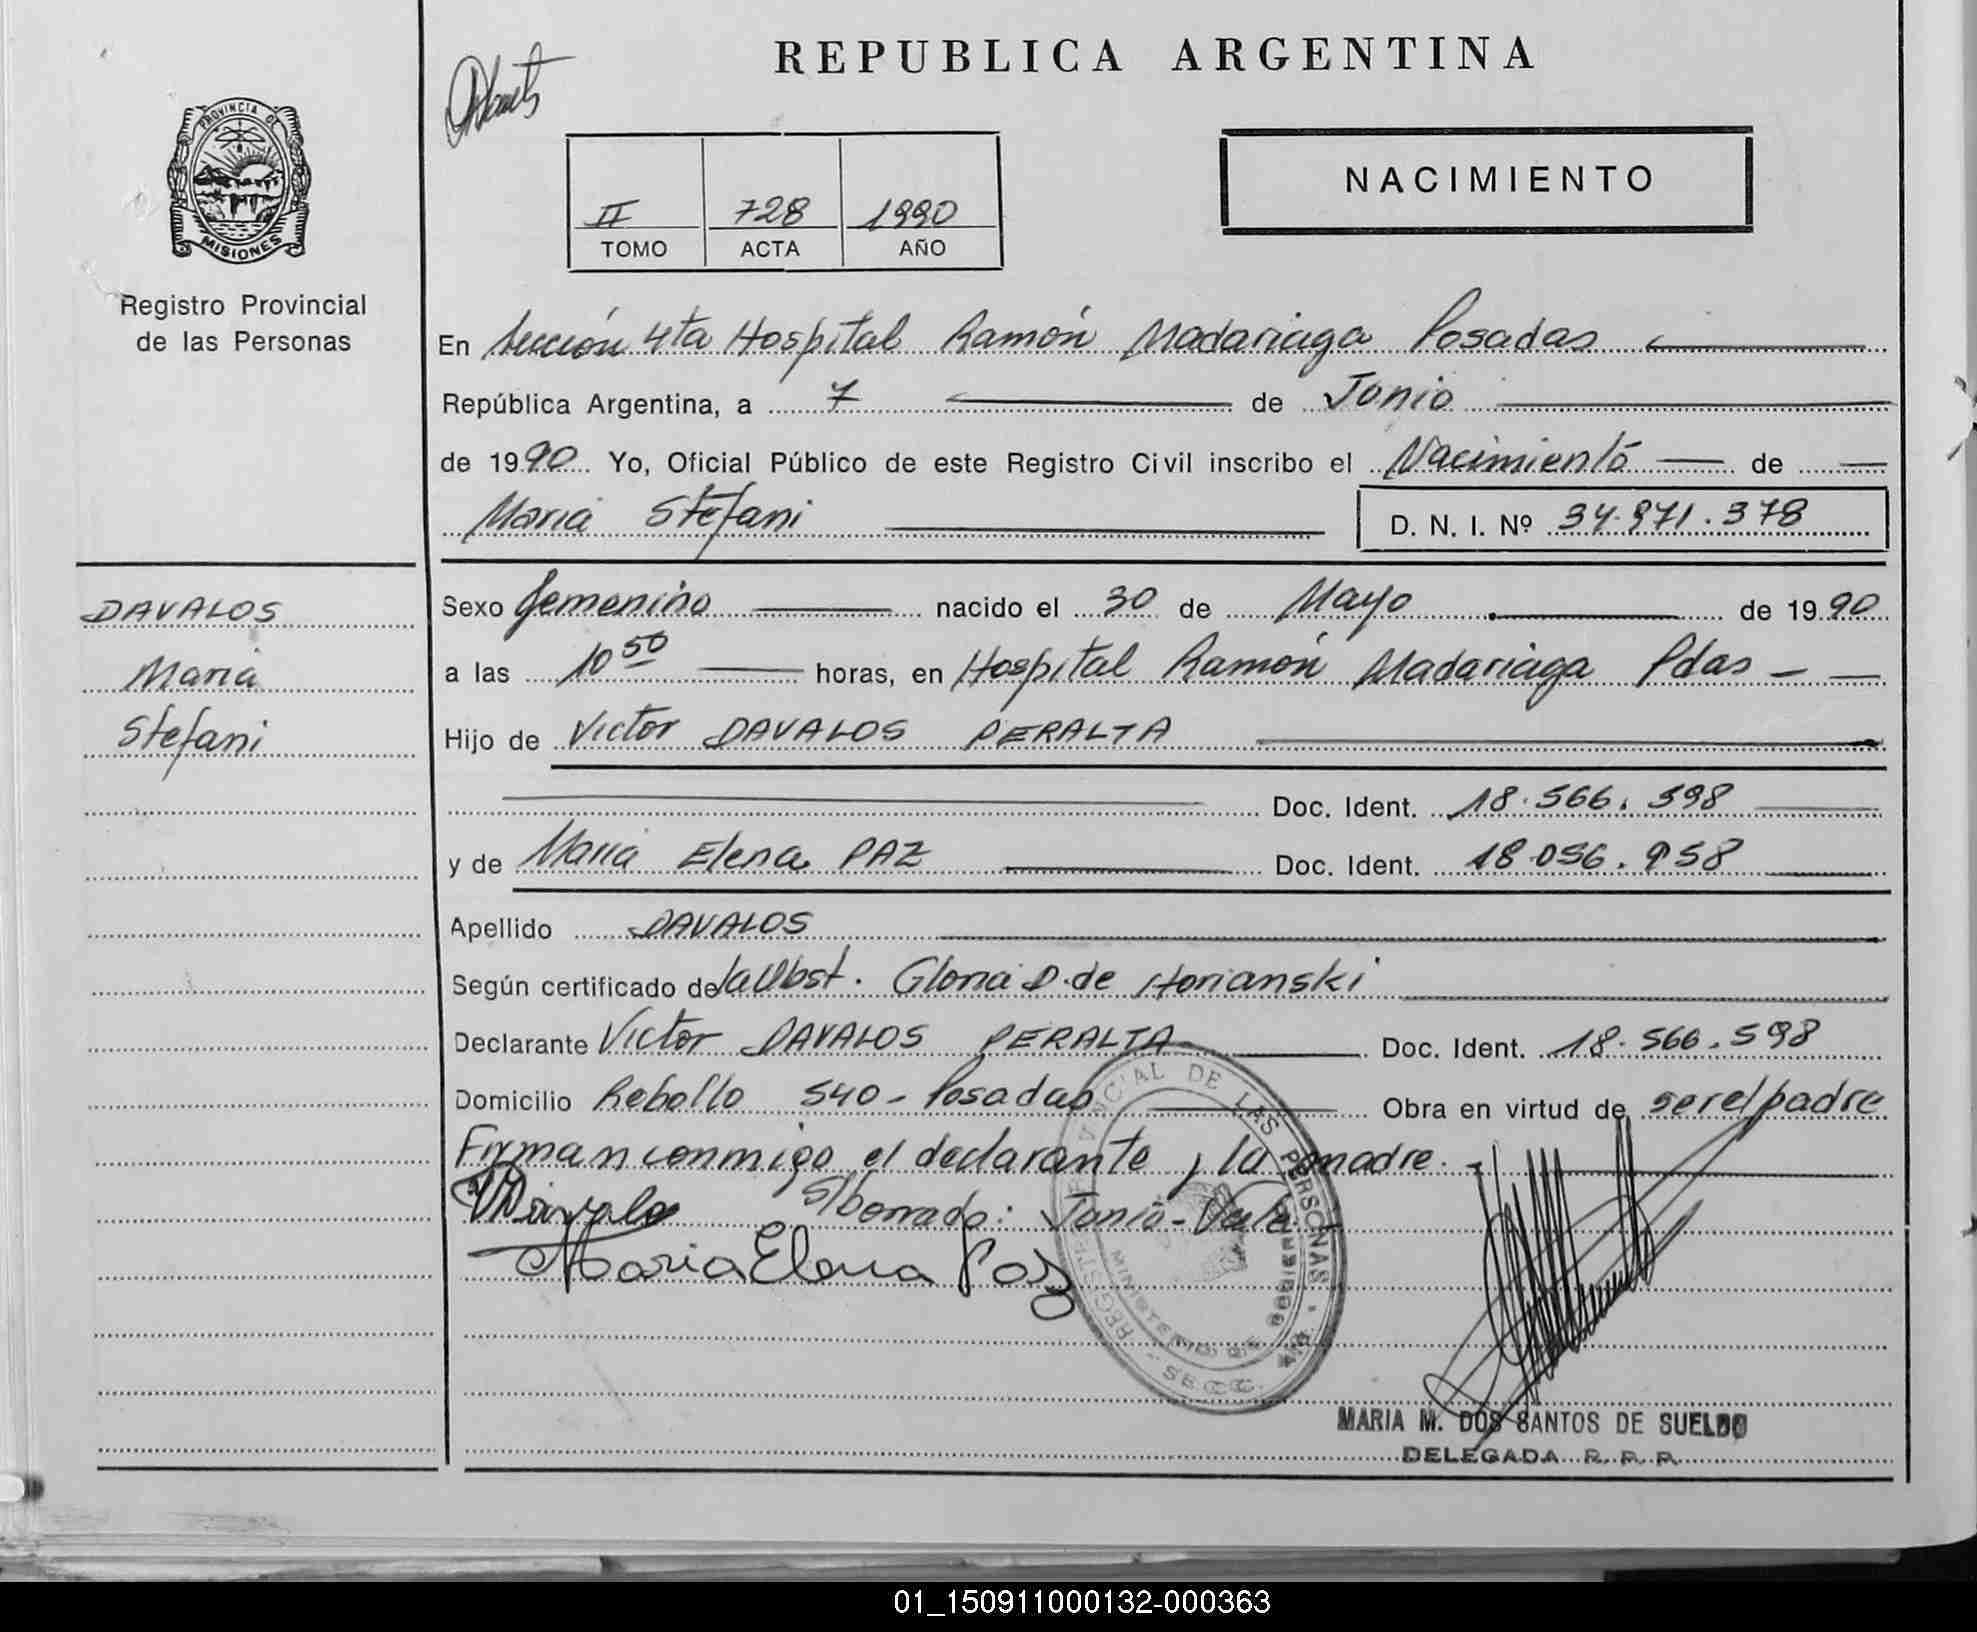 REPUBLICA ARGENTINA
PROVINCIA DE
MISIONES
Registro Provincial
de las Personas
NACIMIENTO
II 728 1990
TOMO ACTA AÑO
En Sección 4ta Hospital Ramón Madariaga Posadas
República Argentina, a 7 de Junio
de 1990 Yo, Oficial Público de este Registro Civil inscribo el Nacimiento de
Maria Stefani D. N. I. Nº 34.971.378
DAVALOS
Maria
Stefani
Sexo femenino nacido el 30 de Mayo de 1990
a las 10 50 horas, en Hospital Ramón Madariaga Pdas
Hijo de Victor DAVALOS PERALTA
Doc. Ident. 18.566.598
y de Maria Elena PAZ Doc. Ident. 18.056.958
Apellido DAVALOS
Según certificado de la Obst. Gloria D. de Horianski
Declarante Victor DAVALOS PERALTA Doc. Ident. 18.566.598
Domicilio Rebollo 540 - Posadas Obra en virtud de ser el padre
Firman conmigo el declarante y la madre.
VDavalo S/borrado: Junio - Vale
Maria Elena Paz
REGISTRO PROVINCIAL DE LAS PERSONAS
MINISTERIO DE
MARIA M. DOS SANTOS DE SUELDO
DELEGADA R. P. P.
01_150911000132-000363